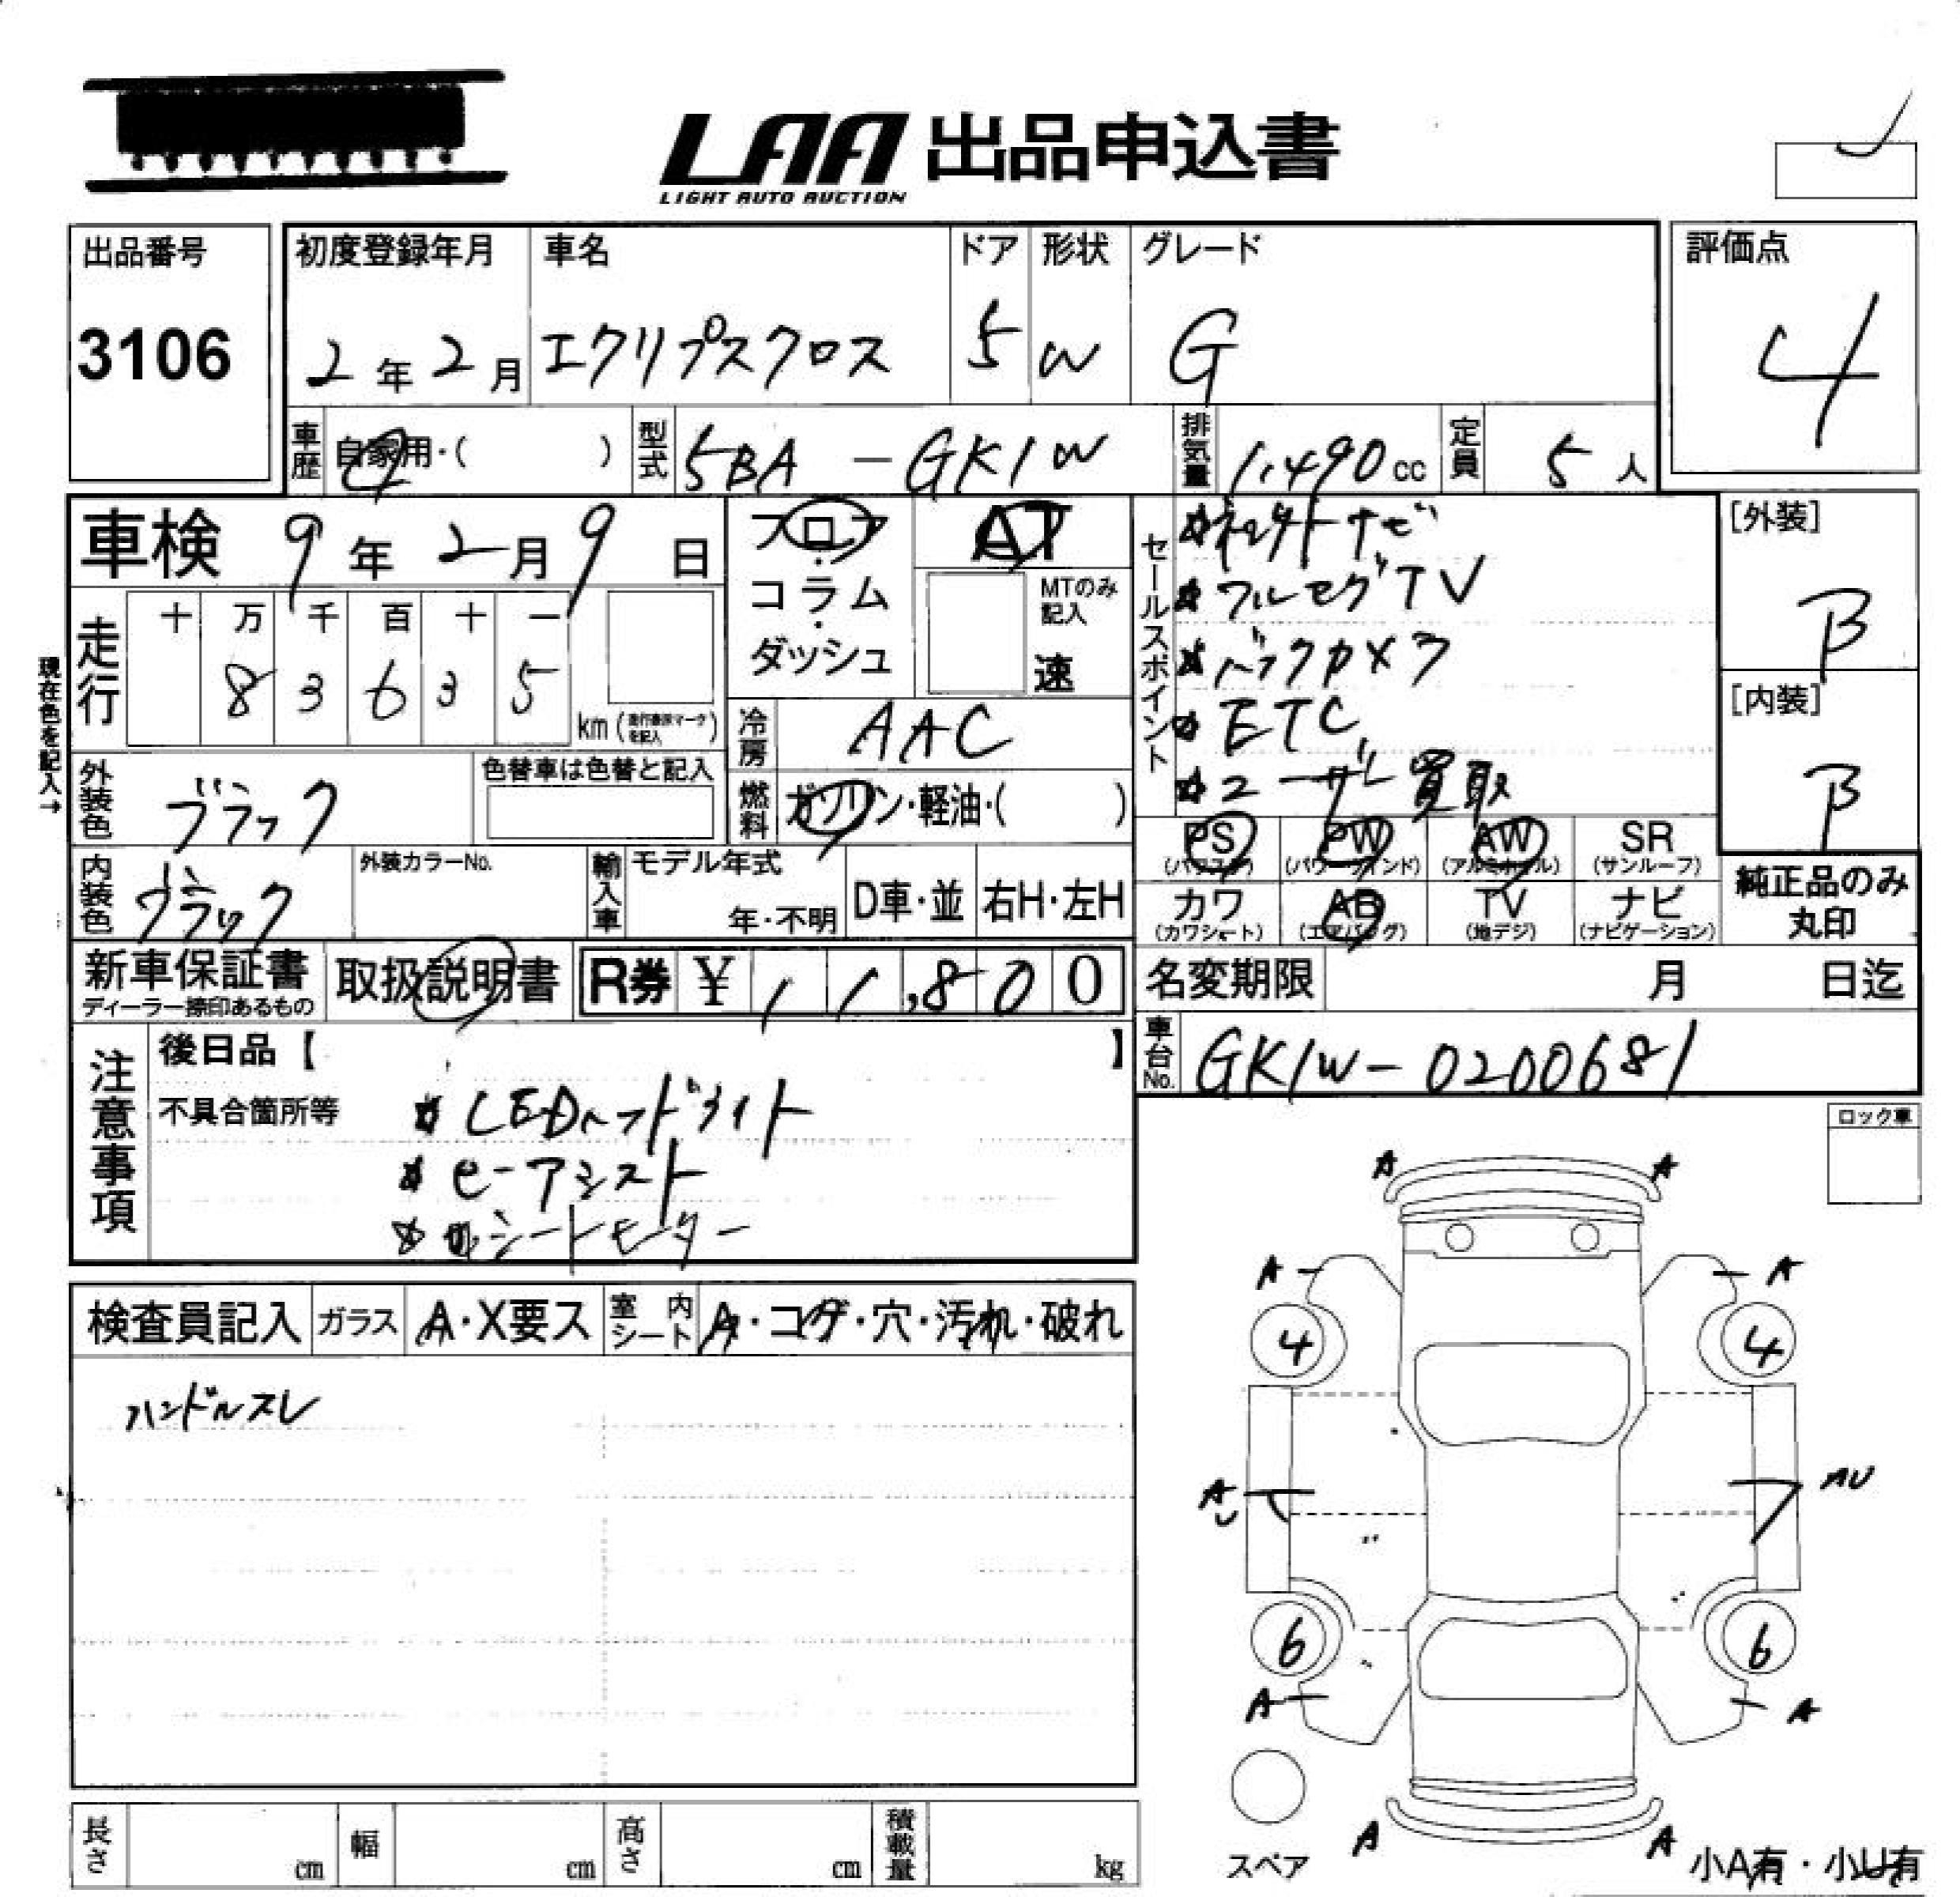 LAA 出品申込書
LIGHT AUTO AUCTION
出品番号
3106
初度登録年月
2年2月
車名
エクリプスクロス
ドア
5
形状
W
グレード
G
評価点
4
車歴
自家用・( )
型式
5BA-GK1W
排気量
1,490cc
定員
5人
車検 9年2月9日
フロア・コラム・ダッシュ
AT
MTのみ記入
速
セールスポイント
フルセグTV
バックカメラ
ETC
ユーザー買取
[外装]
B
[内装]
B
現在色を記入→
走行
十 万 千 百 十 一
8 3 6 3 5
km(走行表示マークを記入)
冷房
AAC
燃料
ガソリン・軽油・( )
外装色
ブラック
色替車は色替と記入
内装色
ブラック
外装カラーNo.
輸入車
モデル年式
年・不明
D車・並
右H・左H
PS
(パワステ)
PW
(パワーウィンド)
AW
(アルミホイル)
SR
(サンルーフ)
カワ
(カワシート)
AB
(エアバッグ)
TV
(地デジ)
ナビ
(ナビゲーション)
純正品のみ
丸印
新車保証書
ディーラー捺印あるもの
取扱説明書
R券 ¥11,800
名変期限 月 日迄
車台No.
GK1W-0200681
注意事項
後日品【 】
不具合箇所等
LEDヘッドライト
e-アシスト
シートヒーター
ロック車
検査員記入
ガラス
A・X要ス
室内シート
A・コゲ・穴・汚れ・破れ
ハンドルスレ
A A
A A
4 4
A AU
6 6
A A
A A
スペア
小A有・小U有
長さ cm
幅 cm
高さ cm
積載量 kg